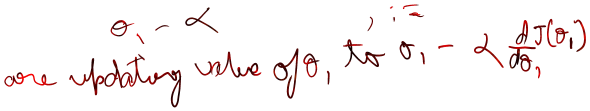 θ₁ - α , :=
are updating value of θ₁ to θ₁ - α dJ(θ₁)/dθ₁